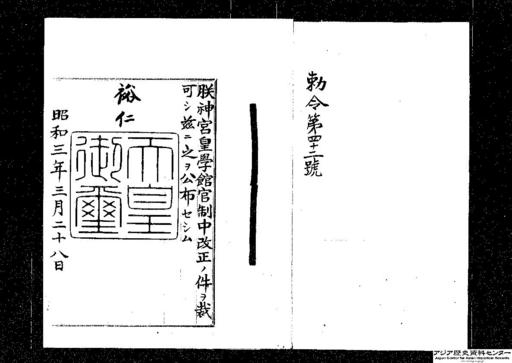 勅令第四十二號
朕神宮皇學館官制中改正ノ件ヲ裁
可シ玆ニ之ヲ公布セシム
裕仁
天皇
御璽
昭和三年三月二十八日
アジア歴史資料センター
Japan Center for Asian Historical Records